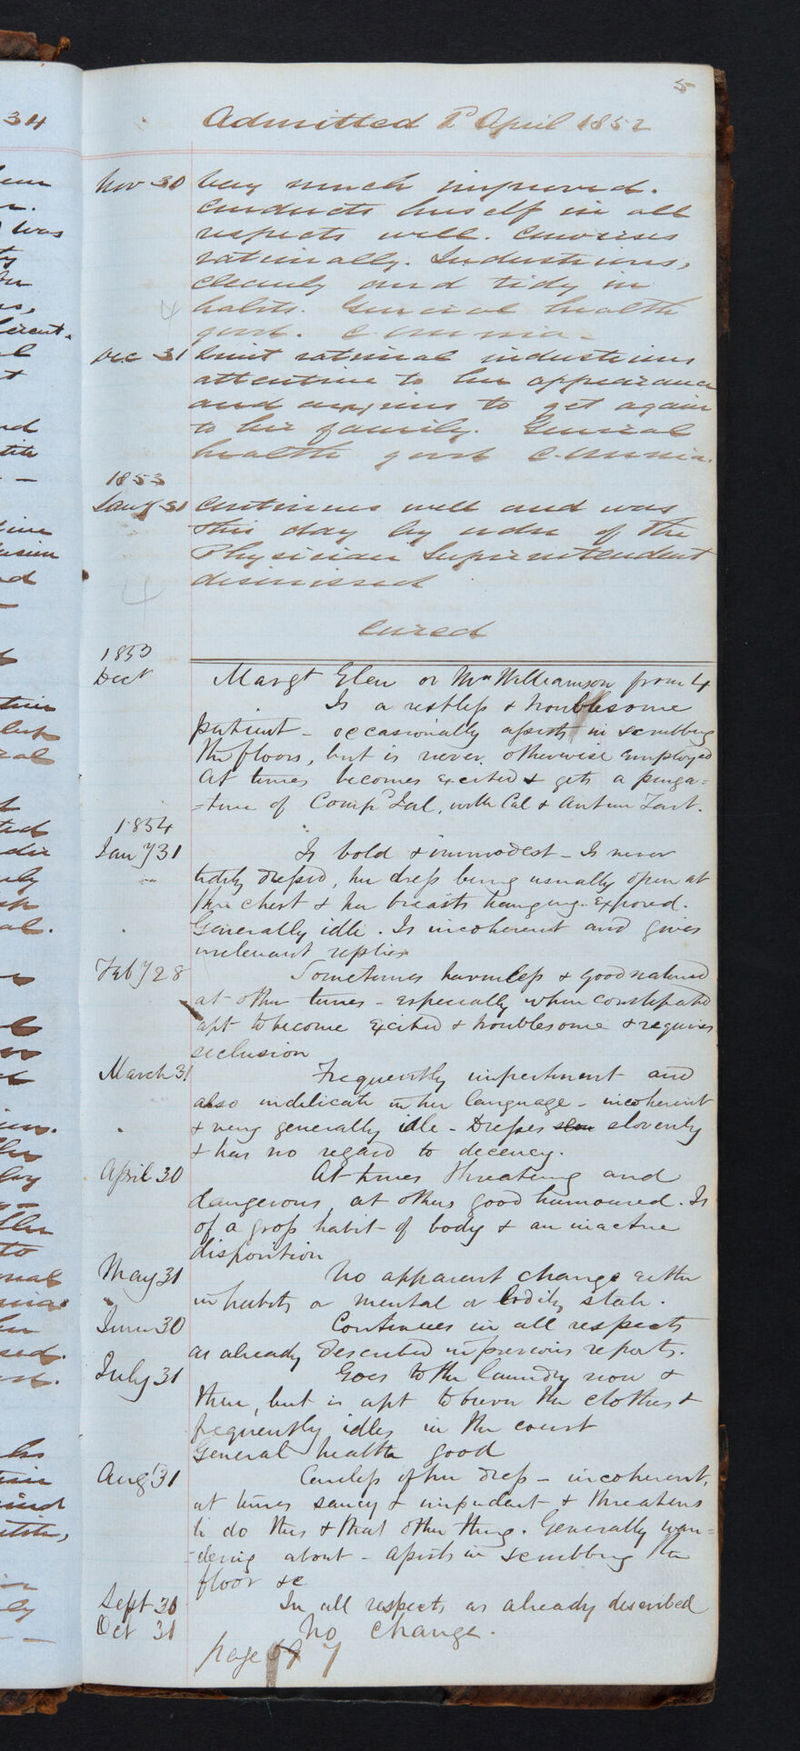 5
Admitted 1st April 1852
Nov 30 Very much improved.
Conducts himself in all
respects well. Converses
rationally. Industrious,
cleanly and tidy in
4 habits. General health
good.
Dec 31 Quiet rational industrious
attentive to his appearance
and anxious to get again
to his family. General
health good
1853
Jany 31 Continues well and was
this day by order of the
Physician Superintendent
dismissed
4
Cured
1853
Decr Margt Glen or Mrs Williamson from 4
Is a restless & troublesome
patient - occasionally assists in scrubbing
the floors, but is never otherwise employed
At times becomes excited & gets a purga=
=tive of Comp Jal. with Cal & Antim Tart.
1854
Jany 31 Is bold & immodest - Is never
tidily dressed, her dress being usually open at
her chest & her breasts hanging exposed.
Generally idle. Is incoherent and gives
irrelevant replies
Feby 28 Sometimes harmless & good natured
at other times - especially when constipated
apt to become excited & troublesome & requires
seclusion
March 31 Frequently impertinent and
also indelicate in her language - incoherent
& very generally idle - Dresses slovenly
& has no regard to decency.
April 30 At times threatening and
dangerous, at others good humoured. Is
of a gross habit of body & an inactive
disposition
May 31 No apparent change either
in habits or mental or bodily state.
June 30 Continues in all respects
as already described in previous reports.
July 31 Goes to the laundry now &
then, but is apt to burn the clothes &
frequently idles in the court
General health good
Augt 31 Careless of her dress - incoherent,
at times saucy & impudent & threatens
to do this & that other thing. Generally wan=
=dering about - assists in scrubbing the
floor &c
Sept 30 In all respects as already described
Oct 31 No change.
page 69 7